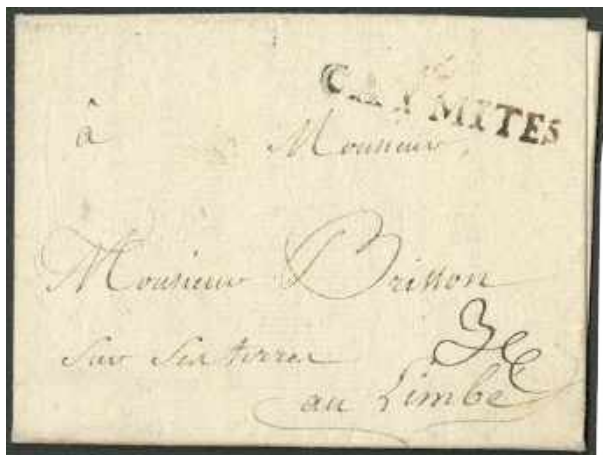 CAYMITES
à Monsieur,
Monsieur Brisson
sur ses terres
au Limbé